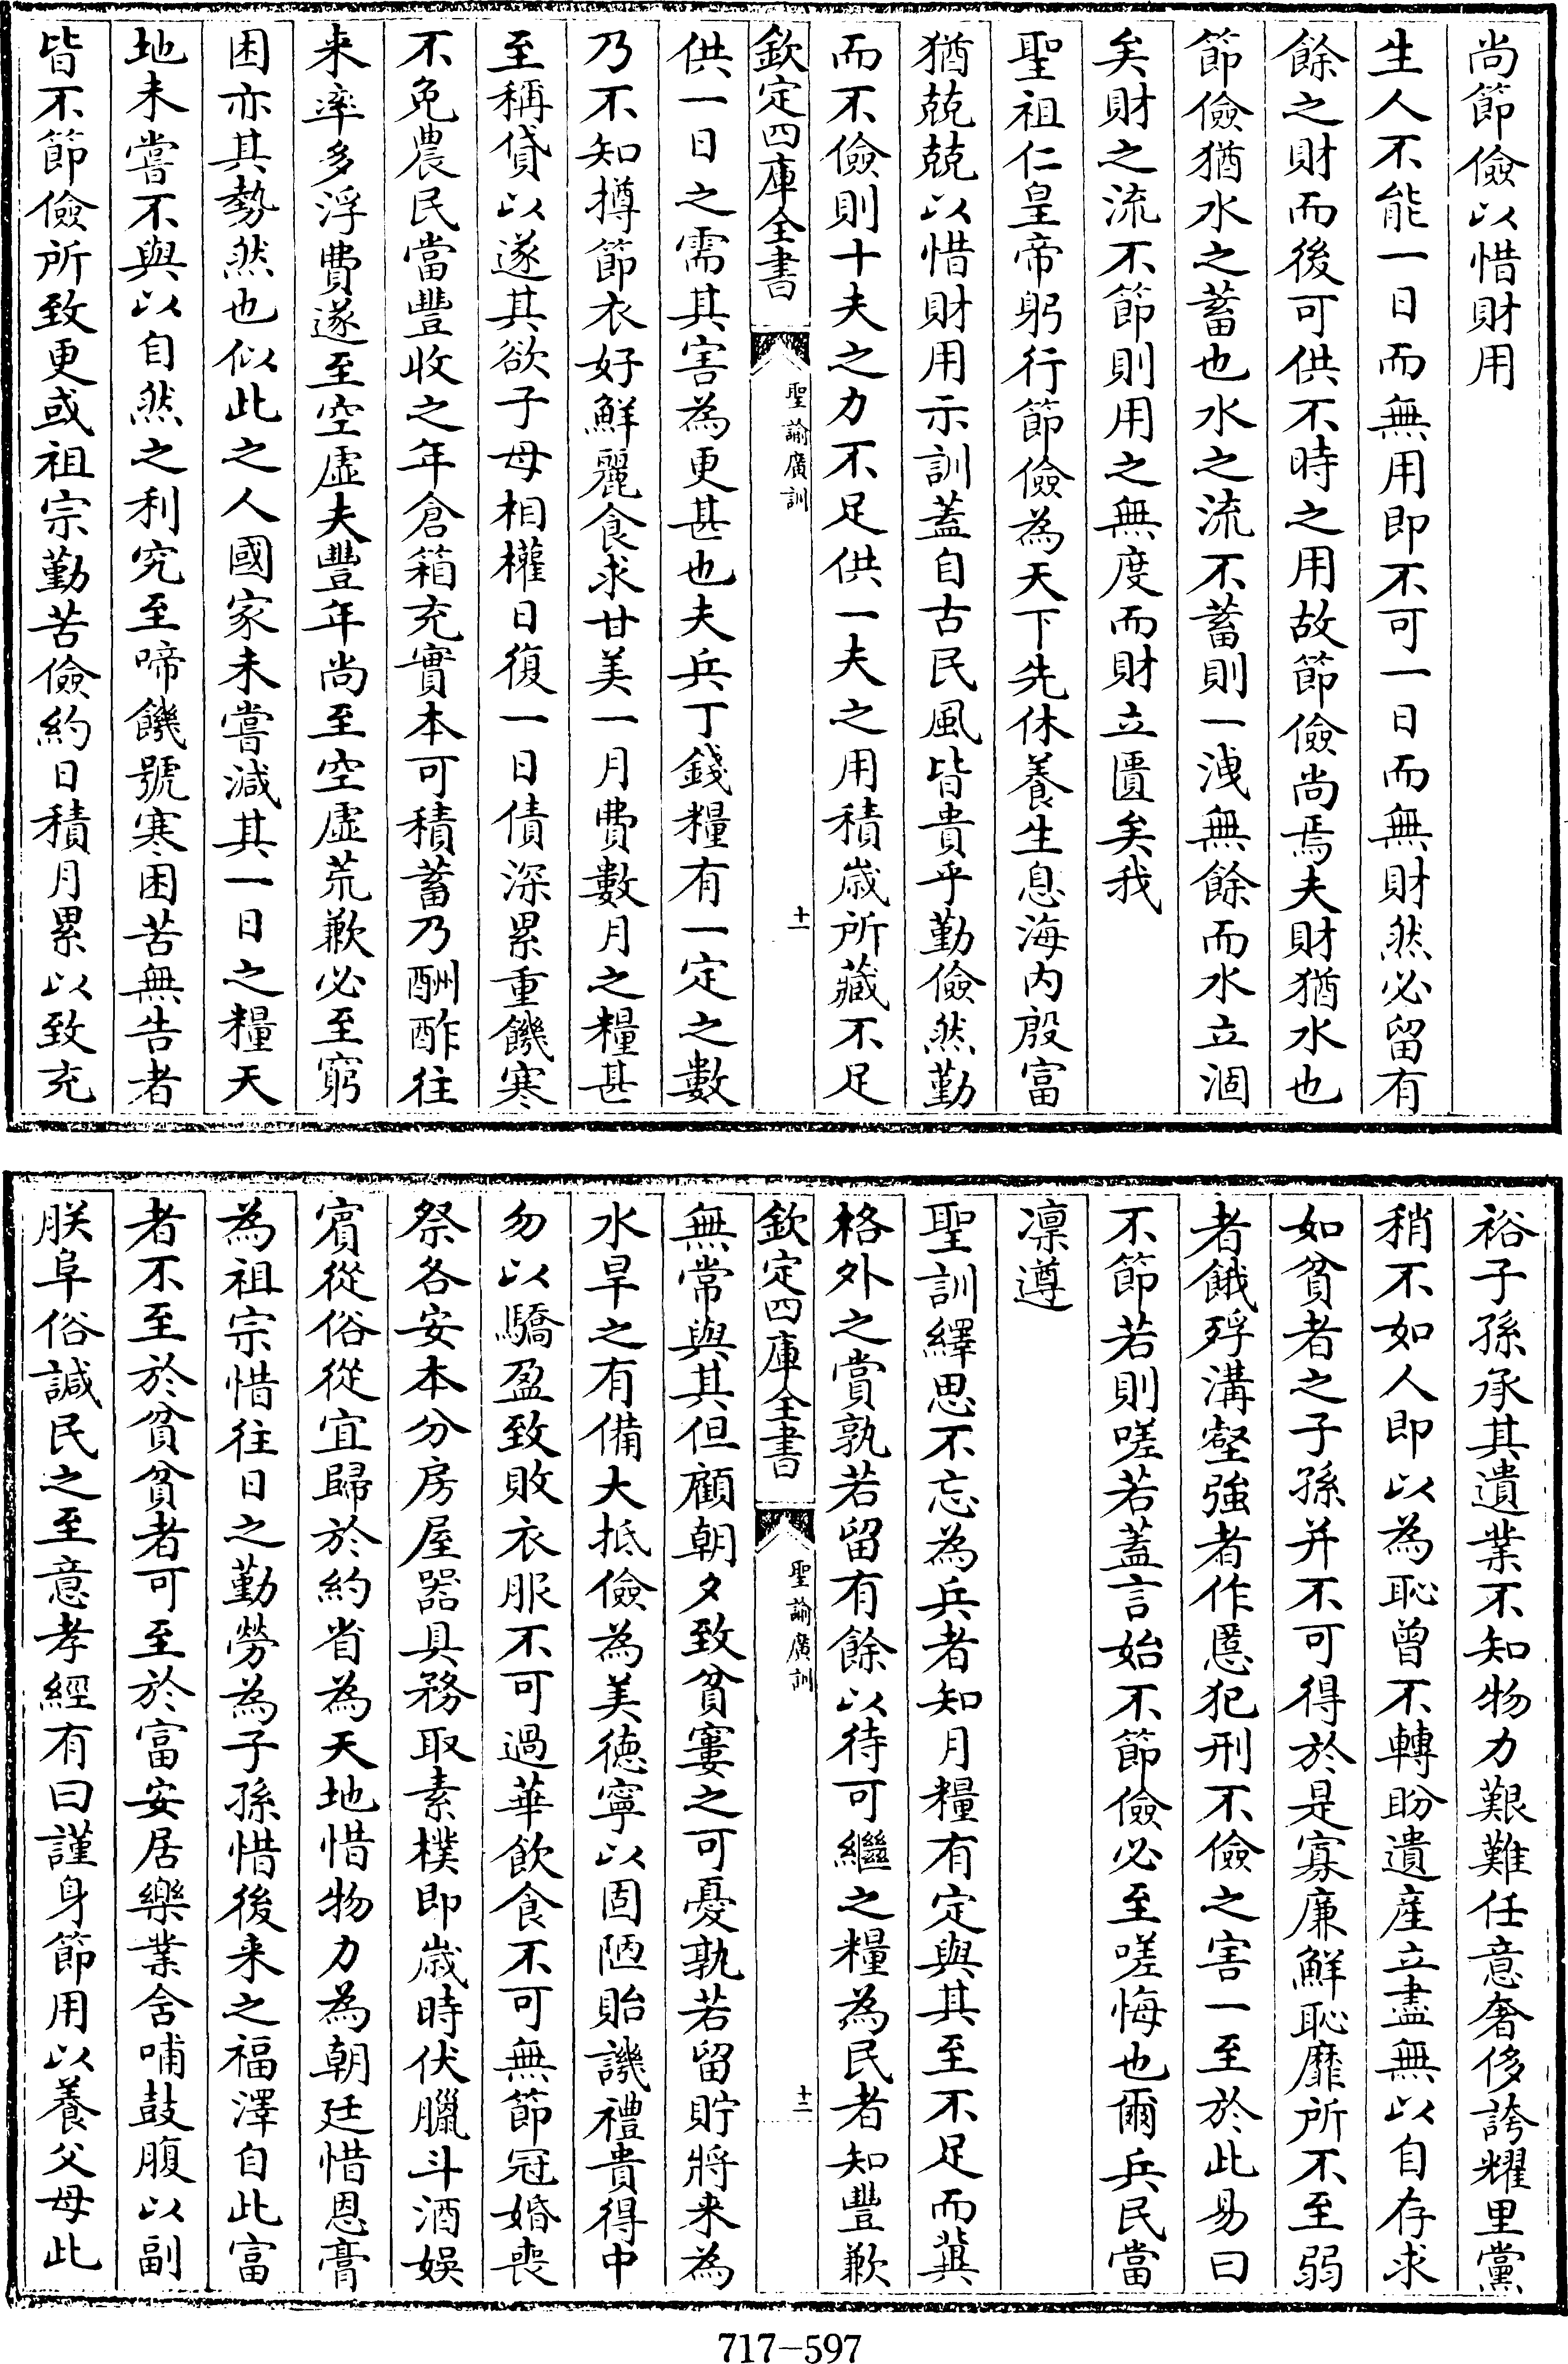 尚節儉以惜財用
生人不能一日而無用即不可一日而無財然必留有
餘之財而後可供不時之用故節儉尚焉夫財猶水也
節儉猶水之蓄也水之流不蓄則一洩無餘而水立涸
矣財之流不節則用之無度而財立匱矣我
聖祖仁皇帝躬行節儉為天下先休養生息海内殷富
猶兢兢以惜財用示訓蓋自古民風皆貴乎勤儉然勤
而不儉則十夫之力不足供一夫之用積歳所藏不足
欽定四庫全書
聖諭廣訓
十一
供一日之需其害為更甚也夫兵丁錢糧有一定之數
乃不知撙節衣好鮮麗食求甘美一月費數月之糧甚
至稱貸以遂其欲子母相權日復一日債深累重饑寒
不免農民當豐收之年倉箱充實本可積蓄乃酬酢往
来率多浮費遂至空虛夫豐年尚至空虛荒歉必至窮
困亦其勢然也似此之人國家未嘗減其一日之糧天
地未嘗不與以自然之利究至啼饑號寒困苦無告者
皆不節儉所致更或祖宗勤苦儉約日積月累以致充
裕子孫承其遺業不知物力艱難任意奢侈誇耀里黨
稍不如人即以為恥曾不轉盼遺産立盡無以自存求
如貧者之子孫并不可得於是寡廉鮮恥靡所不至弱
者餓殍溝壑強者作慝犯刑不儉之害一至於此易曰
不節若則嗟若蓋言始不節儉必至嗟悔也爾兵民當
凛遵
聖訓繹思不忘為兵者知月糧有定與其至不足而冀
格外之賞孰若留有餘以待可繼之糧為民者知豐歉
欽定四庫全書
聖諭廣訓
十二
無常與其但顧朝夕致貧窶之可憂孰若留貯將来為
水旱之有備大抵儉為美德寧以固陋貽譏禮貴得中
勿以驕盈致敗衣服不可過華飲食不可無節冠婚喪
祭各安本分房屋器具務取素樸即歳時伏臘斗酒娯
賓從俗從宜歸於約省為天地惜物力為朝廷惜恩膏
為祖宗惜往日之勤勞為子孫惜後来之福澤自此富
者不至於貧貧者可至於富安居樂業含哺鼓腹以副
朕阜俗諴民之至意孝經有曰謹身節用以養父母此
717-597